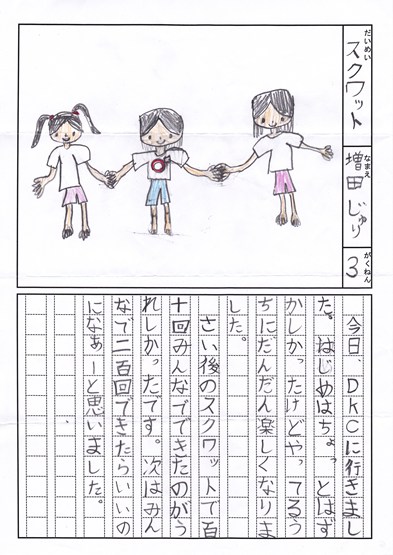 だいめい
スクワット
なまえ
増田じゅり
がくねん
3
今日、DKCに行きまし
た。はじめはちょっとはず
かしかったけどやってるう
ちにだんだん楽しくなりま
した。
さい後のスクワットで百
十回みんなでできたのがう
れしかったです。次はみん
なで二百回できたらいいの
になぁーと思いました。